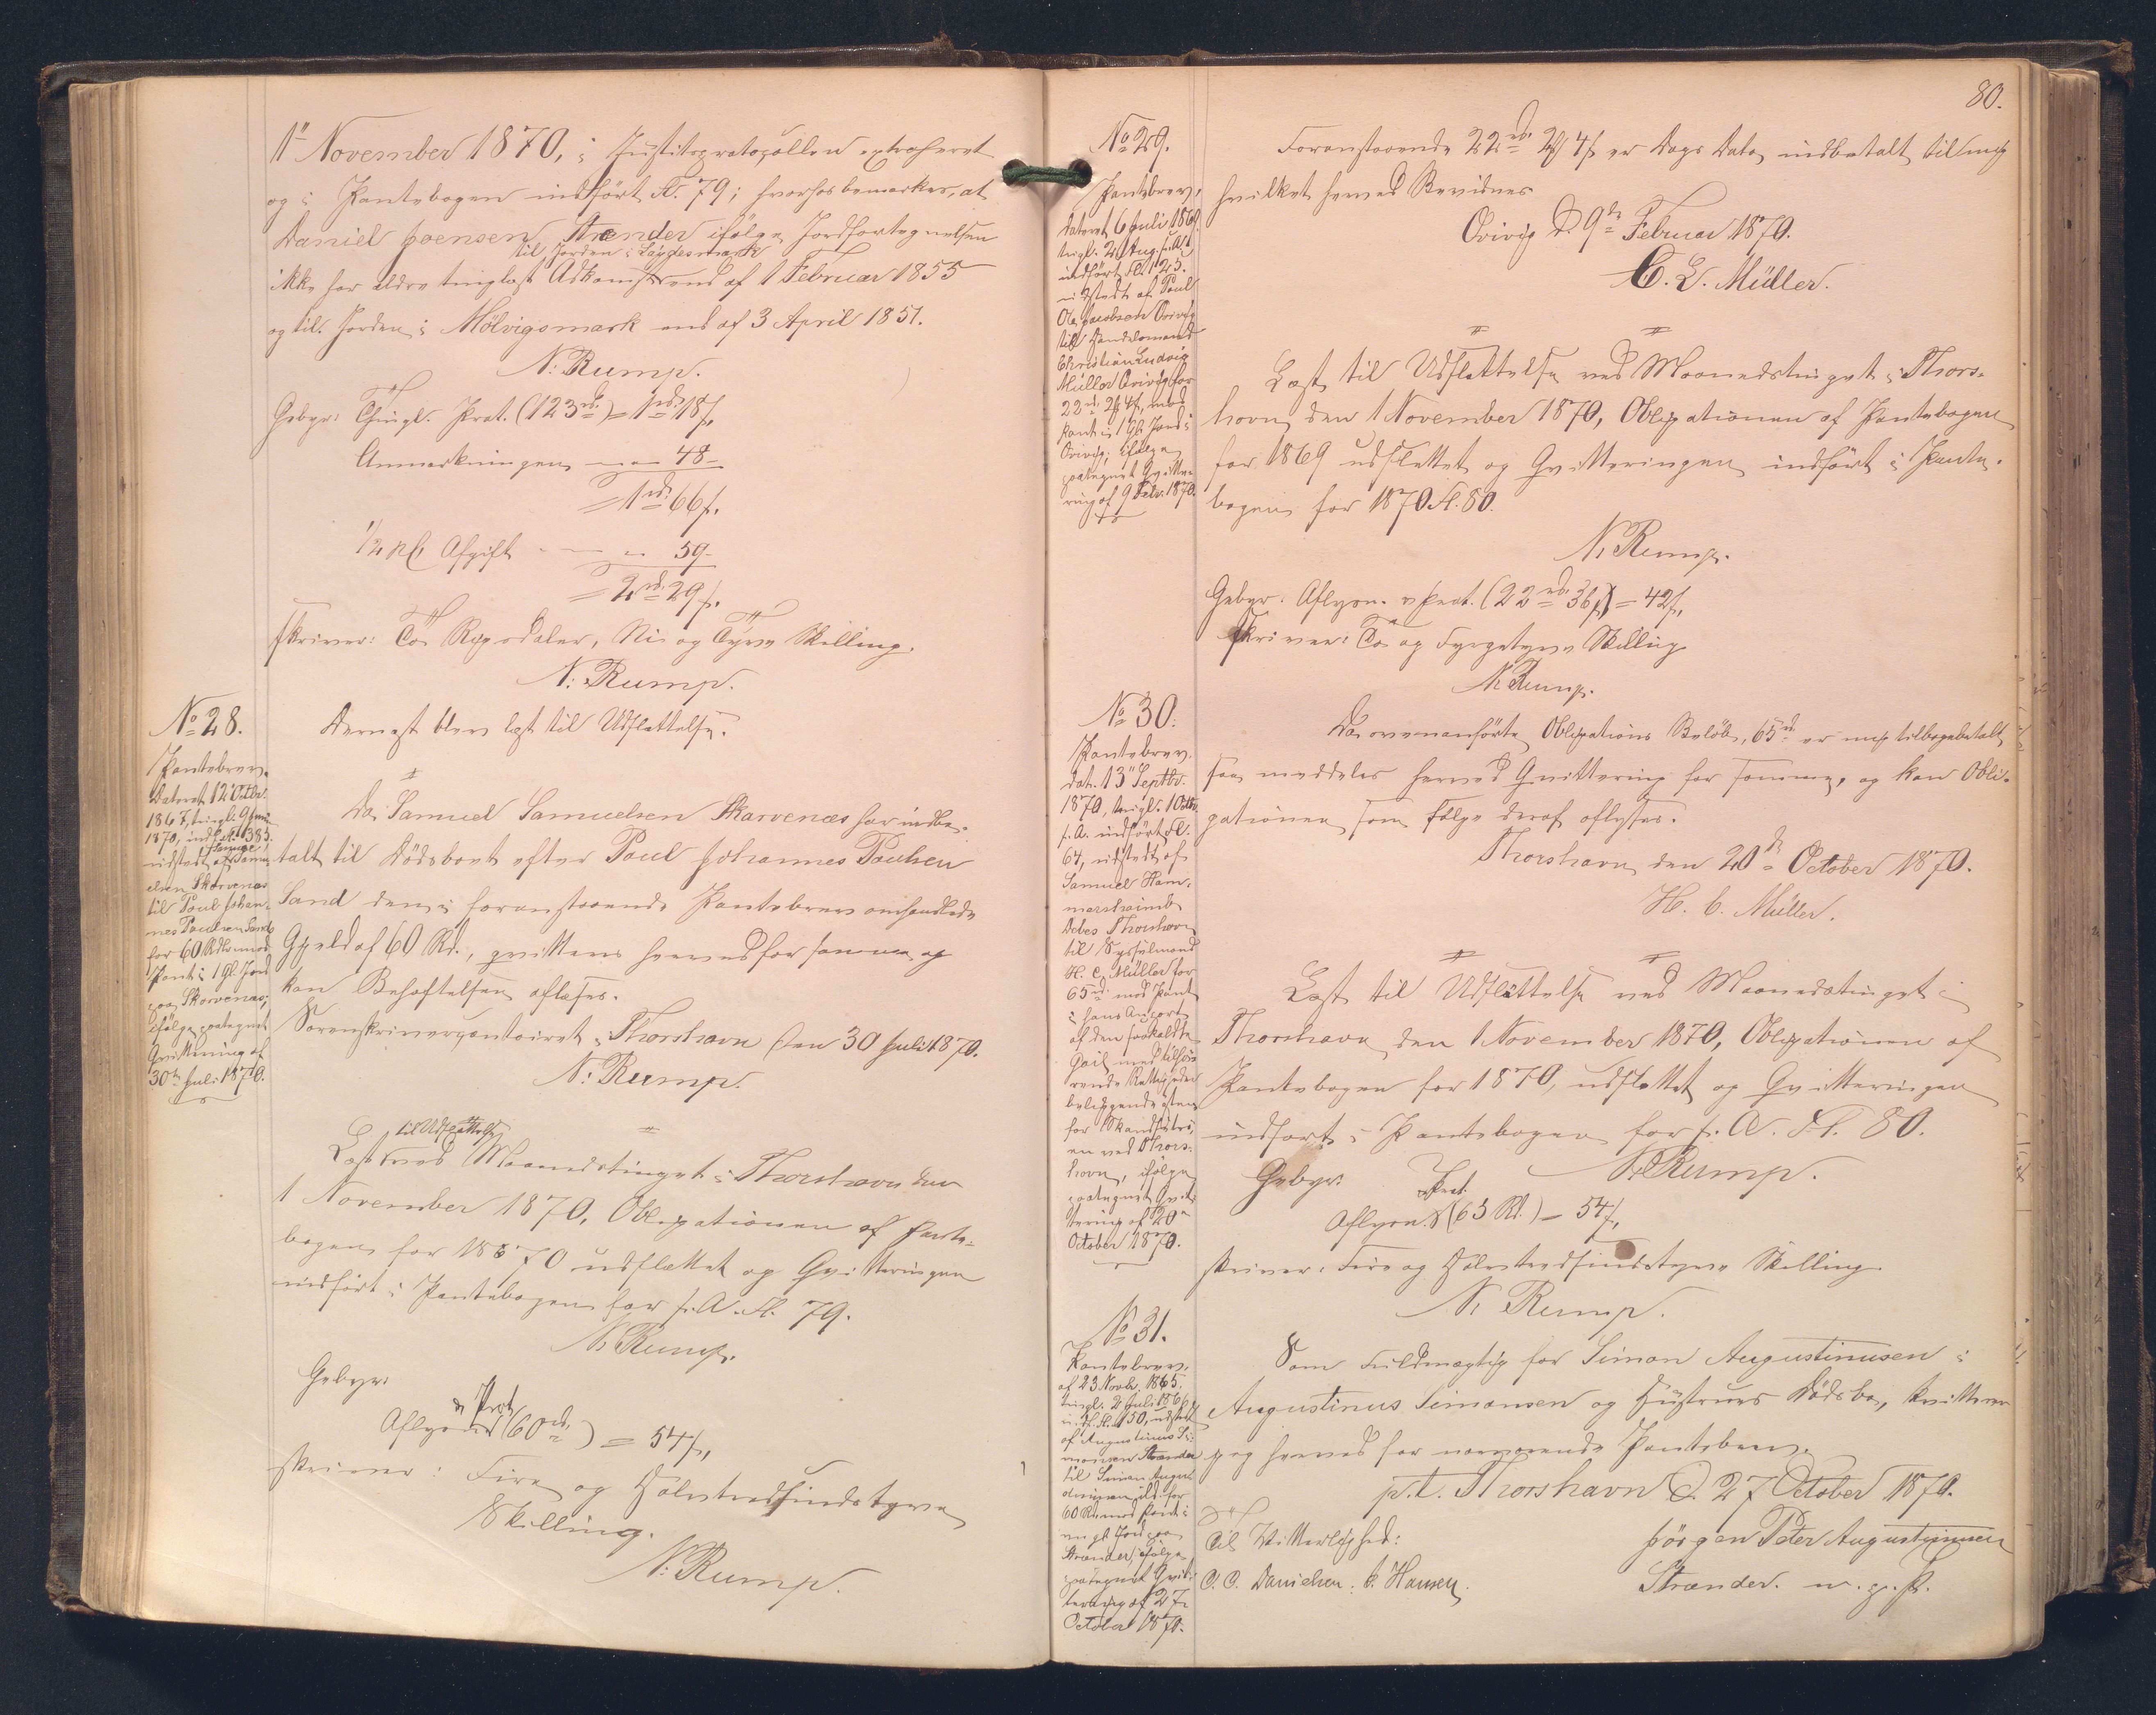 1ᵗᵉ November 1870, i Justitsprotocollen extraheret
og i Pantebogen indført Fl. 79; hvorhos bemærkes, at
Daniel Joensen Strender ifølge Jordfortegnelsen
til Jorden i Løjdesmark
ikke har ældre tinglæst Adkomst end af 1 Februar 1855
og til Jorden i Mølvigsmark end af 3 April 1851.
N. Rump.
Gebyr: Thingl. Prot. (123 rd.) = 1 rd. 18 s.
Anmærkningen — 48 -
= 1 rd. 66 s.
1/2 pCt Afgift - - - 59 -
= 2 rd. 29 s.
skriver: To Rigsdaler, Ni og Tyve Skilling.
N. Rump.
No 28.
Pantebrev,
dateret 12 Octbr.
1867, tingl. 9 Juni
1870, indf. Fl. 385.
udstedt af Samu-
elsen Skarvenæs
til Poul Johan-
nes Poulsen Sand
for 60 Rdlr. mod
Pant i 1 Gl. Jord
paa Skarvenæs;
ifølge paategnet
Qvittering af
30te Juli 1870.
Dernæst blev læst til Udslettelse:
Da Samuel Samuelsen Skarvenæs har indbe-
talt til Dødsboet efter Poul Johannes Poulsen
Sand den i foranstaaende Pantebrev omhandlede
Gjeld af 60 Rd., qvitteres herved for samme og
kan Behæftelsen aflæses.
Sorenskrivercontoiret i Thorshavn den 30 Juli 1870.
N. Rump.
til Udslettelse
Læst ved Maanedstinget i Thorshavn den
1 November 1870, Obligationen af Pante-
bogen for 1870 udslettet og Qvitteringen
indført i Pantebogen for s. A. Fl. 79.
N. Rump.
Gebyr:
& Prot.
Aflysn. (60 rd.) = 54 s.
skriver: Fire og Halvtredsindstyve
Skilling.
N. Rump.
80.
No 29.
Pantebrev,
dateret 6 Juli 1869,
tingl. 2 Aug. s. A.,
indført Fl. 125.
udstedt af Poul
Ole Jacobsen Qvivig
til Handelsmand
Christian Ludvig
Müller Qvivig for
22 rd. 2 ƒ 4 s, mod
Pant i 1 Gl. Jord i
Qvivig; ifølge
paategnet Qvitte-
ring af 9 Febr. 1870.
Foranstaaende 22 rd. 2 ƒ 4 s er Dags Dato indbetalt til mig
hvilket herved Bevidnes
Qvivig d. 9de Februar 1870.
C. L. Müller.
Læst til Udslettelse ved Maanedstinget i Thors-
havn den 1 November 1870, Obligationen af Pantebogen
for 1869 udslettet og Qvitteringen indført i Pante-
bogen for 1870 Fl. 80.
N. Rump.
Gebyr: Aflysn. & Prot. (22 rd. 36 s) = 42 s,
skriver: To og Fyrgetyve Skilling
N. Rump.
No 30.
Pantebrev,
dat. 13 Septbr.
1870, tingl. 1 Octbr.
s. A. indført Fl.
64, udstedt af
Samuel Ham-
mershaimb
Debes Thorshavn
til Sysselmand
H. C. Müller for
65 rd. mod Pant
i hans Anpart
af den saakaldte
Gail med tilhø-
rende Rettigheder
beliggende østen
for Skandsetrø-
en ved Thors-
havn, ifølge
paategnet Qvit-
tering af 20
October 1870.
Da ovenanførte Obligations Beløb, 65 rd. er mig tilbagebetalt,
saa meddeles herved Qvittering for samme, og kan Obli-
gationen som Følge deraf aflyses.
Thorshavn, den 20de October 1870.
H. C. Müller.
Læst til Udslettelse ved Maanedstinget i
Thorshavn den 1 November 1870, Obligationen af
Pantebogen for 1870, udslettet og Qvitteringen
indført i Pantebogen for s. A. Fl. 80.
N. Rump.
Gebyr:
& Prot.
Aflysn. (65 Rd.) = 54 s,
skriver: Fire og Halvtredsindstyve Skilling.
N. Rump.
No 31.
Pantebrev,
af 23 Novbr. 1865.
tingl. 2 Juli 1866
i Fl. 150, udstedt
af Augustinus Si-
monsen Strænder
til Simon Augu-
stinusen ibd. for
60 Rd. mod Pant i
en gl. Jord paa
Strænder, ifølge
paategnet Qvit-
tering af 27
October 1870.
Som Fuldmægtig for Simon Augustinusen i
Augustinus Simonsen og Hustrues Dødsbo, kvitterer
jeg herved for nærværende Pantebrev.
p.t. Thorshavn d. 27 October 1870.
Til Vitterlighed:
Jörgen Peter Augustinusen
C. C. Danielsen. J. Hansen.
Strænder. m. p. P.